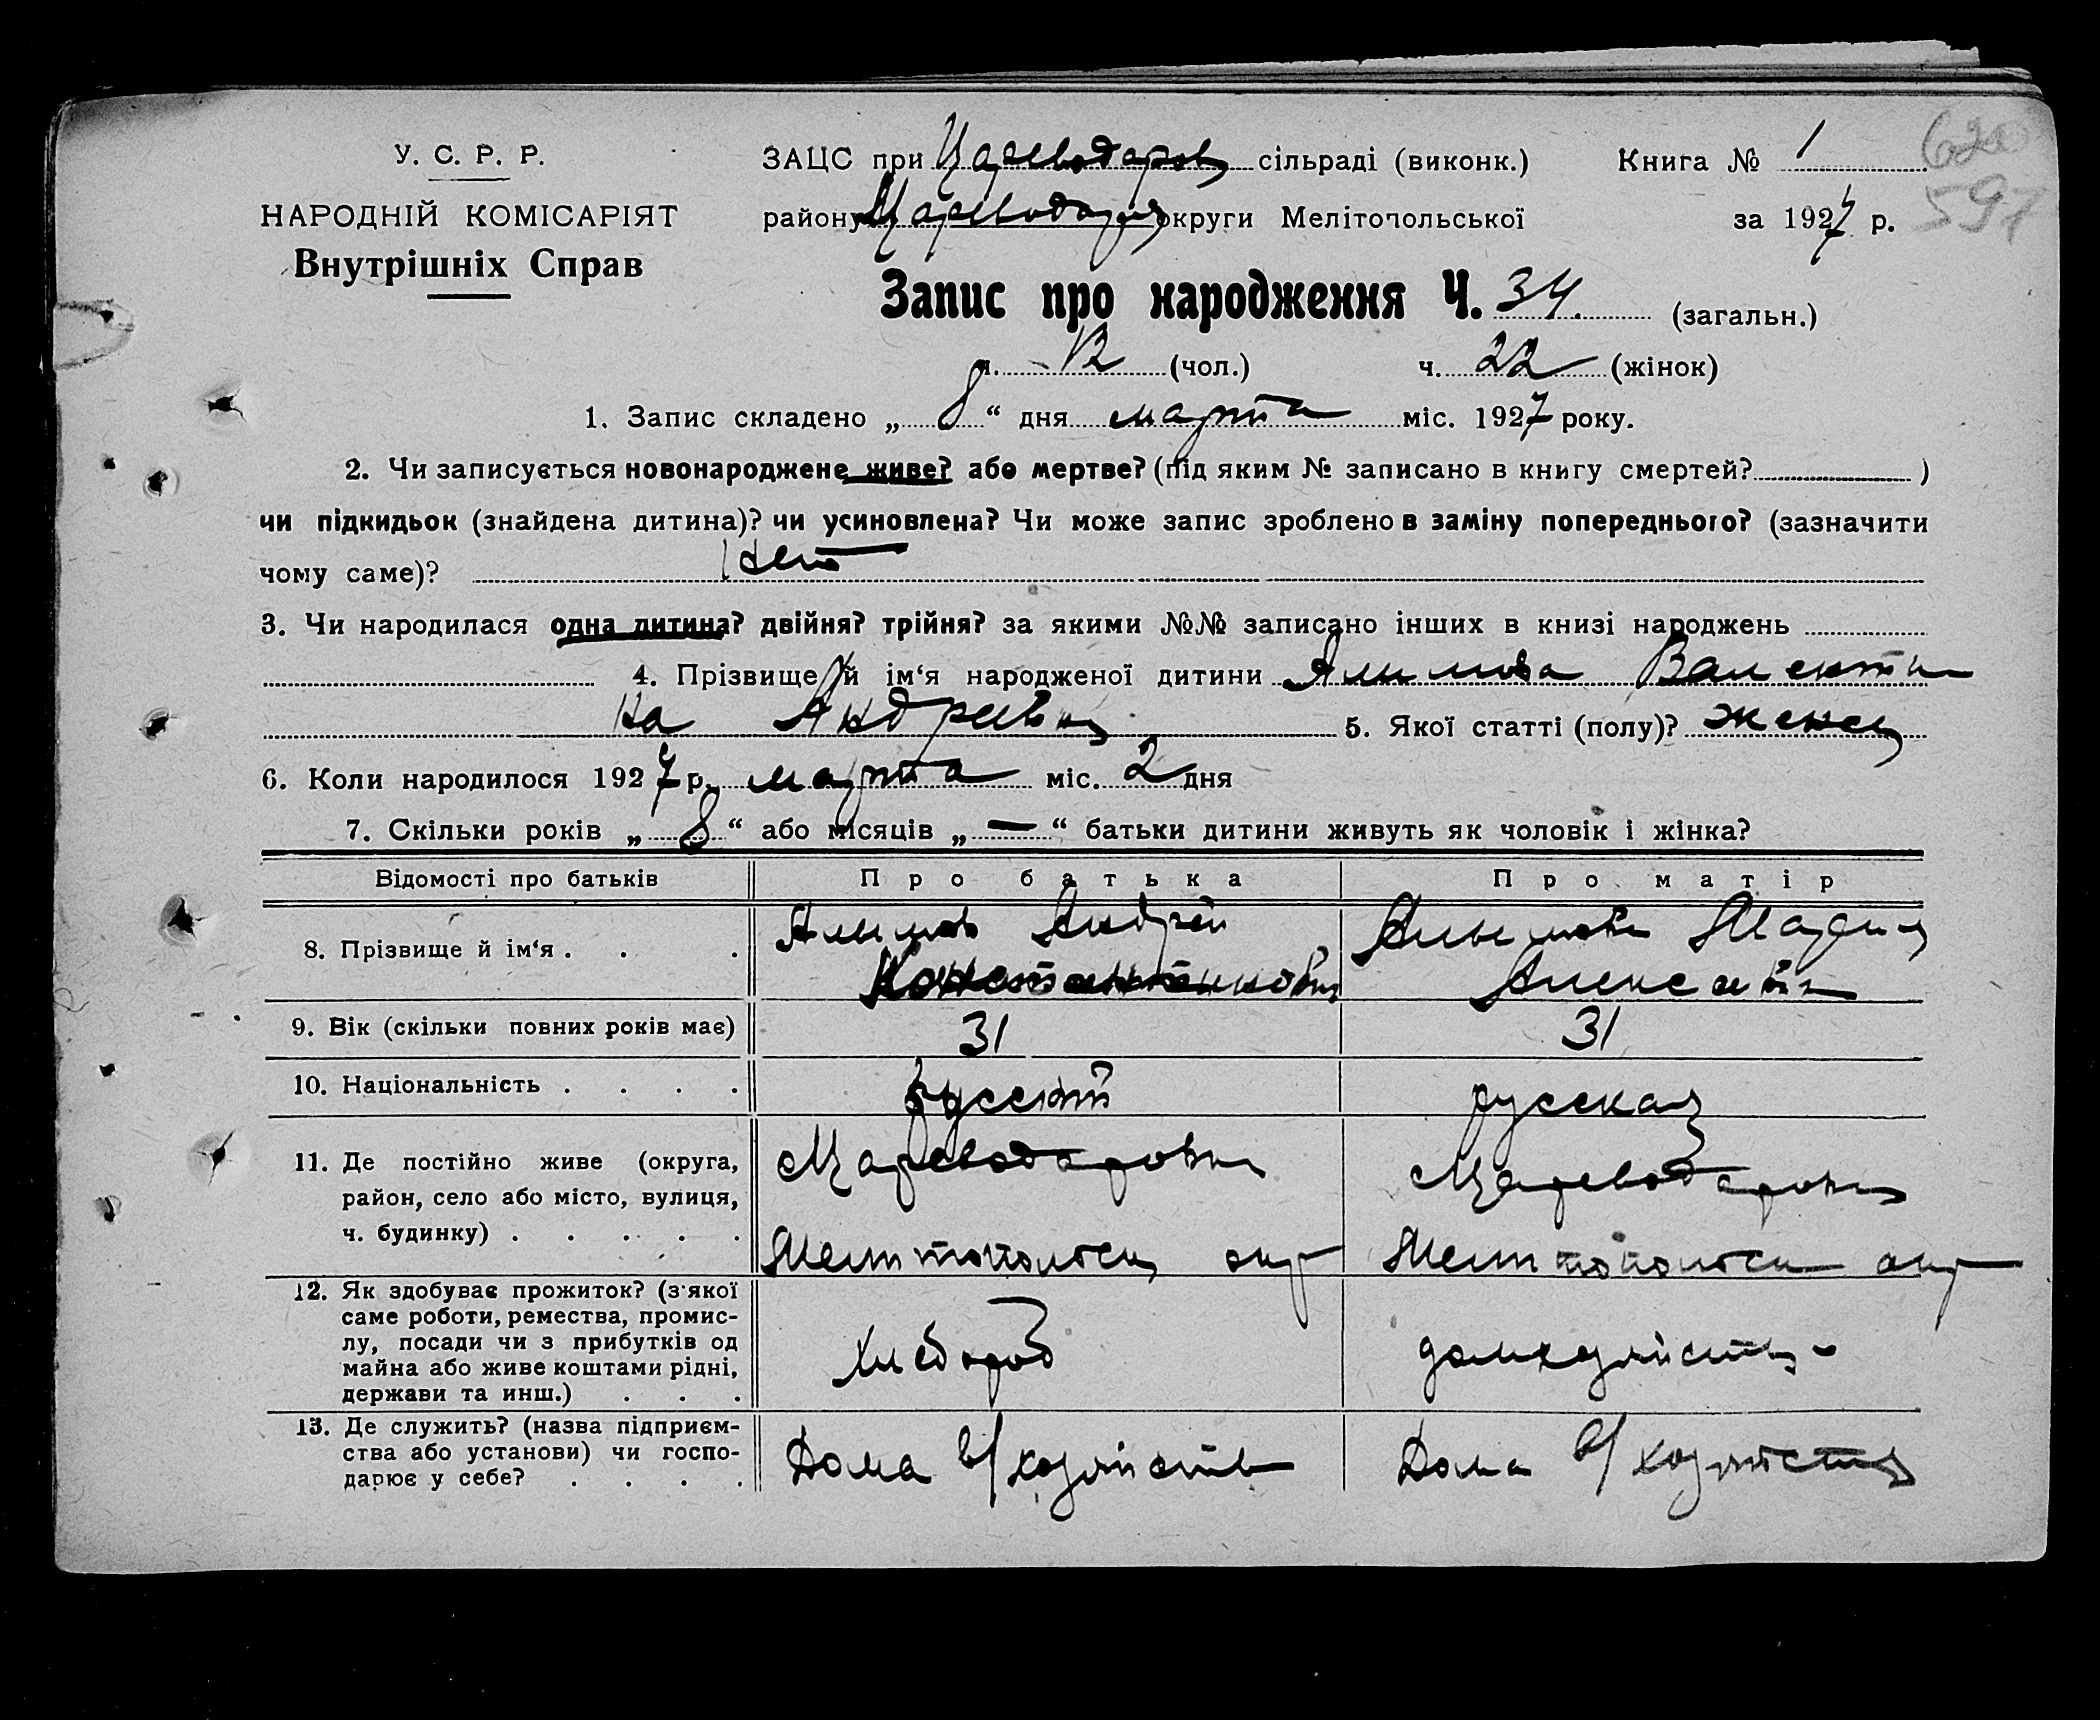 У. С. Р. Р.
НАРОДНІЙ КОМІСАРІЯТ
Внутрішніх Справ
ЗАЦС при Цареводаров сільраді (виконк.) Книга № 1
району Цареводар округи Мелітопольської за 1927 р.
620
597
Запис про народження Ч. 34. (загальн.)
ч. 12 (чол.) ч. 22 (жінок)
1. Запис складено „ 8 “ дня марта міс. 1927 року.
2. Чи записується новонароджене живе? або мертве? (під яким № записано в книгу смертей? )
чи підкидьок (знайдена дитина)? чи усиновлена? Чи може запис зроблено в заміну попереднього? (зазначити
чому саме)? Нет
3. Чи народилася одна дитина? двійня? трійня? за якими №№ записано інших в книзі народжень
4. Прізвище й ім‘я народженої дитини Алимова Валенти
на Андреевна 5. Якої статті (полу)? женск
6. Коли народилося 1927 р. марта міс. 2 дня
7. Скільки років „ 8 “ або місяців „ — “ батьки дитини живуть як чоловік і жінка?
Відомості про батьків Про батька Про матір
8. Прізвище й ім‘я . . . Алимов Андрей Алимова Мария
Константинович Алексеевн
9. Вік (скільки повних років має) 31 31
10. Національність . . . . русский русская
11. Де постійно живе (округа, Цареводаровка Цареводаровка
район, село або місто, вулиця,
ч. будинку) . . . . . Мелитопольск окр Мелитопольск окр
12. Як здобуває прожиток? (з'якої
саме роботи, ремества, промис-
лу, посади чи з прибутків од
майна або живе коштами рідні, Хлебороб домхозяйств
держави та инш.) . . .
13. Де служить? (назва підприєм-
ства або установи) чи госпо- Дома в/хозяйстве Дома в/хозяйстве
дарює у себе? . . . .